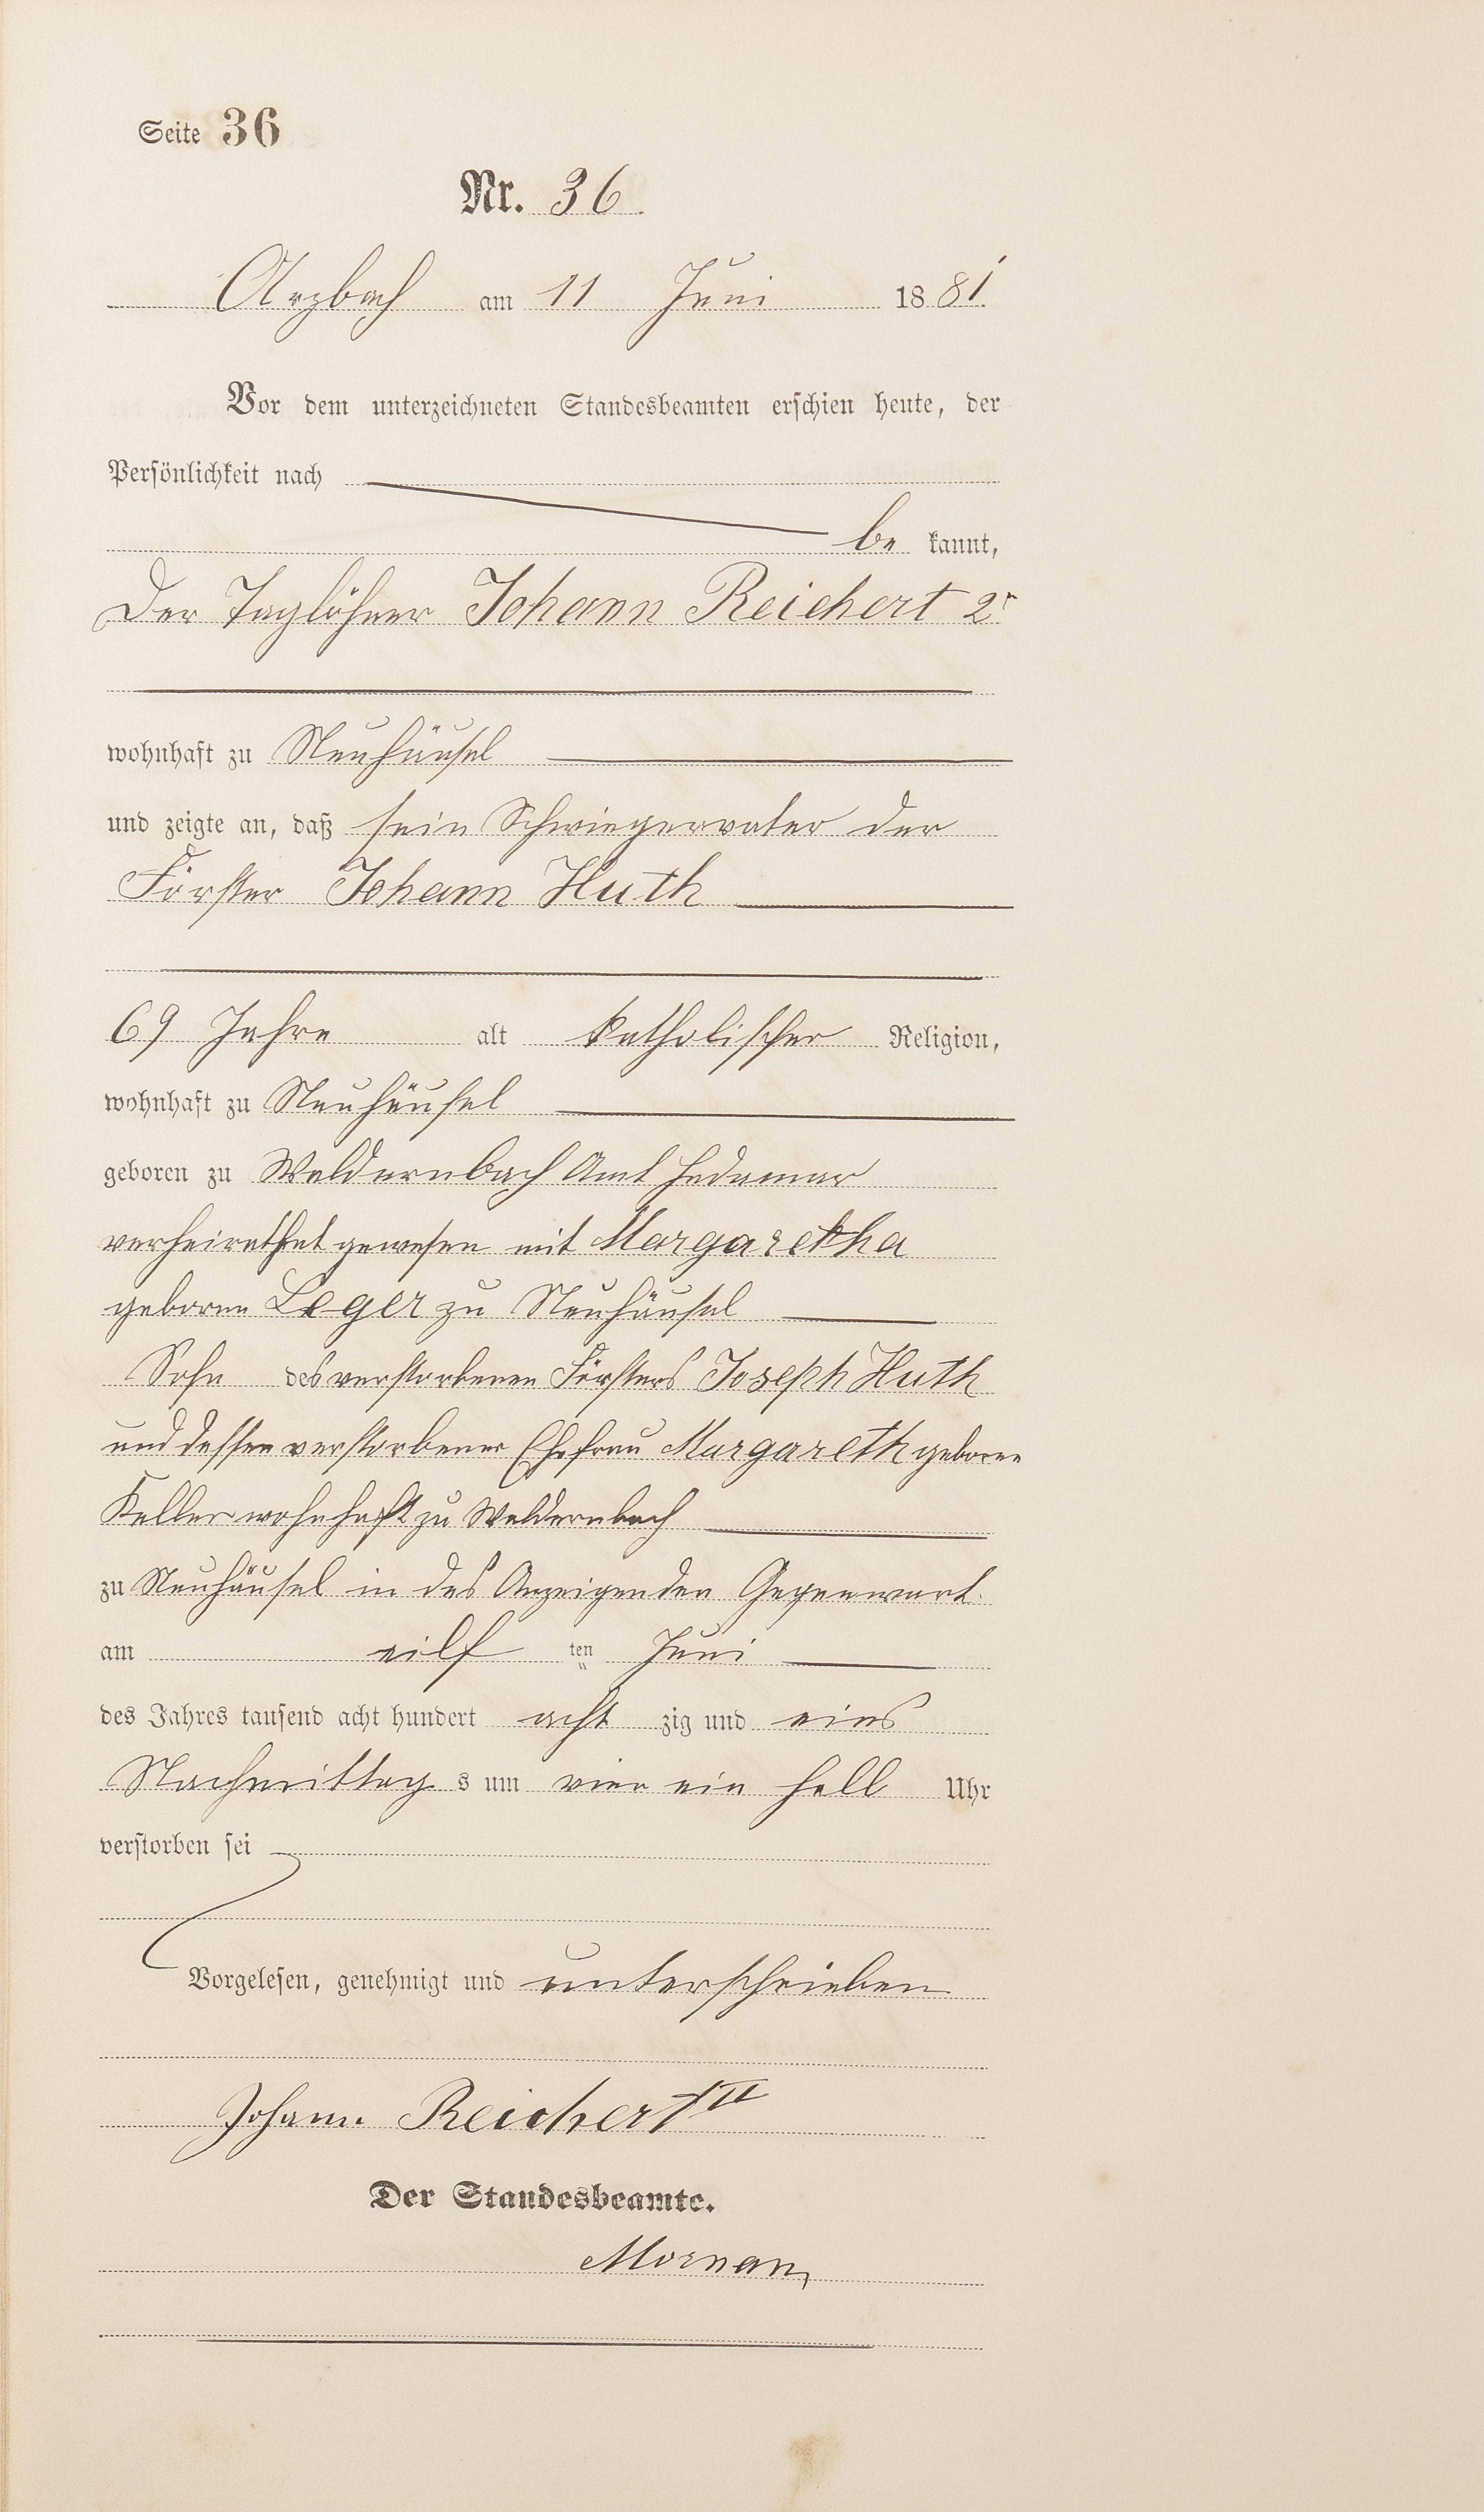 Seite 36
Nr. 36.
Arzbach am 11 Juni 1881.
Vor dem unterzeichneten Standesbeamten erschien heute, der
Persönlichkeit nach
be kannt,
Der Taglöhner Johann Reichert 2r
wohnhaft zu Neuhäusel
und zeigte an, daß sein Schwiegervater der
Förster Johann Huth
69 Jahre alt katholischer Religion,
wohnhaft zu Neuhäusel
geboren zu Waldernbach Amt Hadamar
verheirathet gewesen mit Margaretha
geborne Leger zu Neuhäusel
Sohn des verstorbenen Försters Joseph Huth
und dessen verstorbener Ehefrau Margareth geborne
Keller wohnhaft zu Waldernbach
zu Neuhäusel in des Anzeigenden Gegenwart
am eilf ten Juni
des Jahres tausend acht hundert acht zig und eins
Nachmittag s um vier ein halb Uhr
verstorben sei
Vorgelesen, genehmigt und unterschrieben
Johann Reichert II
Der Standesbeamte.